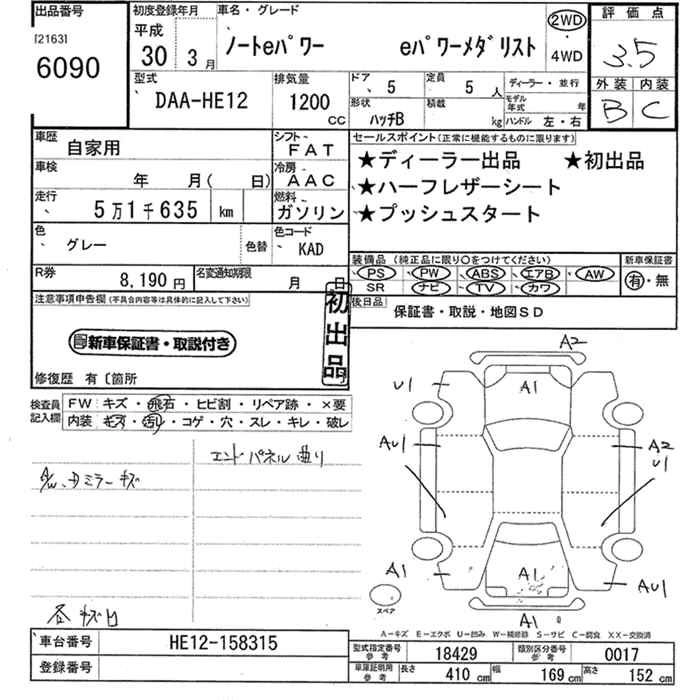 出品番号
[2163]
6090
初度登録年月
平成
30 3月
車名・グレード
ノートeパワー eパワーメダリスト
2WD
・
4WD
評価点
3.5
外装 内装
B C
型式
DAA-HE12
排気量
1200
CC
ドア 5
定員 5 人
ディーラー・並行
形状 ハッチB
積載 kg
モデル年式 年
ハンドル 左・右
車歴 自家用
シフト FAT
車検 年 月( 日)
冷房 AAC
走行 5万1千635 km
燃料 ガソリン
色 グレー
色替
色コード KAD
R券 8,190 円
名変通知期限 月 日
セールスポイント(正常に機能するものに限ります)
★ディーラー出品 ★初出品
★ハーフレザーシート
★プッシュスタート
装備品(純正品に限り○をつけてください)
新車保証書
PS PW ABS エアB AW
SR ナビ TV カワ
有・無
後日品
保証書・取説・地図SD
注意事項申告欄(不具合内容等は具体的に記入して下さい)
新車保証書・取説付き
初出品
修復歴 有〔箇所
検査員記入欄
FW キズ・飛石・ヒビ割・リペア跡・×要
内装 キズ・汚れ・コゲ・穴・スレ・キレ・破レ
エンドパネル曲り
A/W、ドミラーキズ
各キズ凹
A2
U1
A1
AU1
A2
U1
A1
A1
AU1
A1
スペア
A―キズ E―エクボ U―凹み W―補修跡 S―サビ C―腐食 XX―交換済
車台番号 HE12-158315
登録番号
型式指定番号 参考 18429
類別区分番号 参考 0017
車庫証明用 参考 長さ 410 cm 幅 169 cm 高さ 152 cm